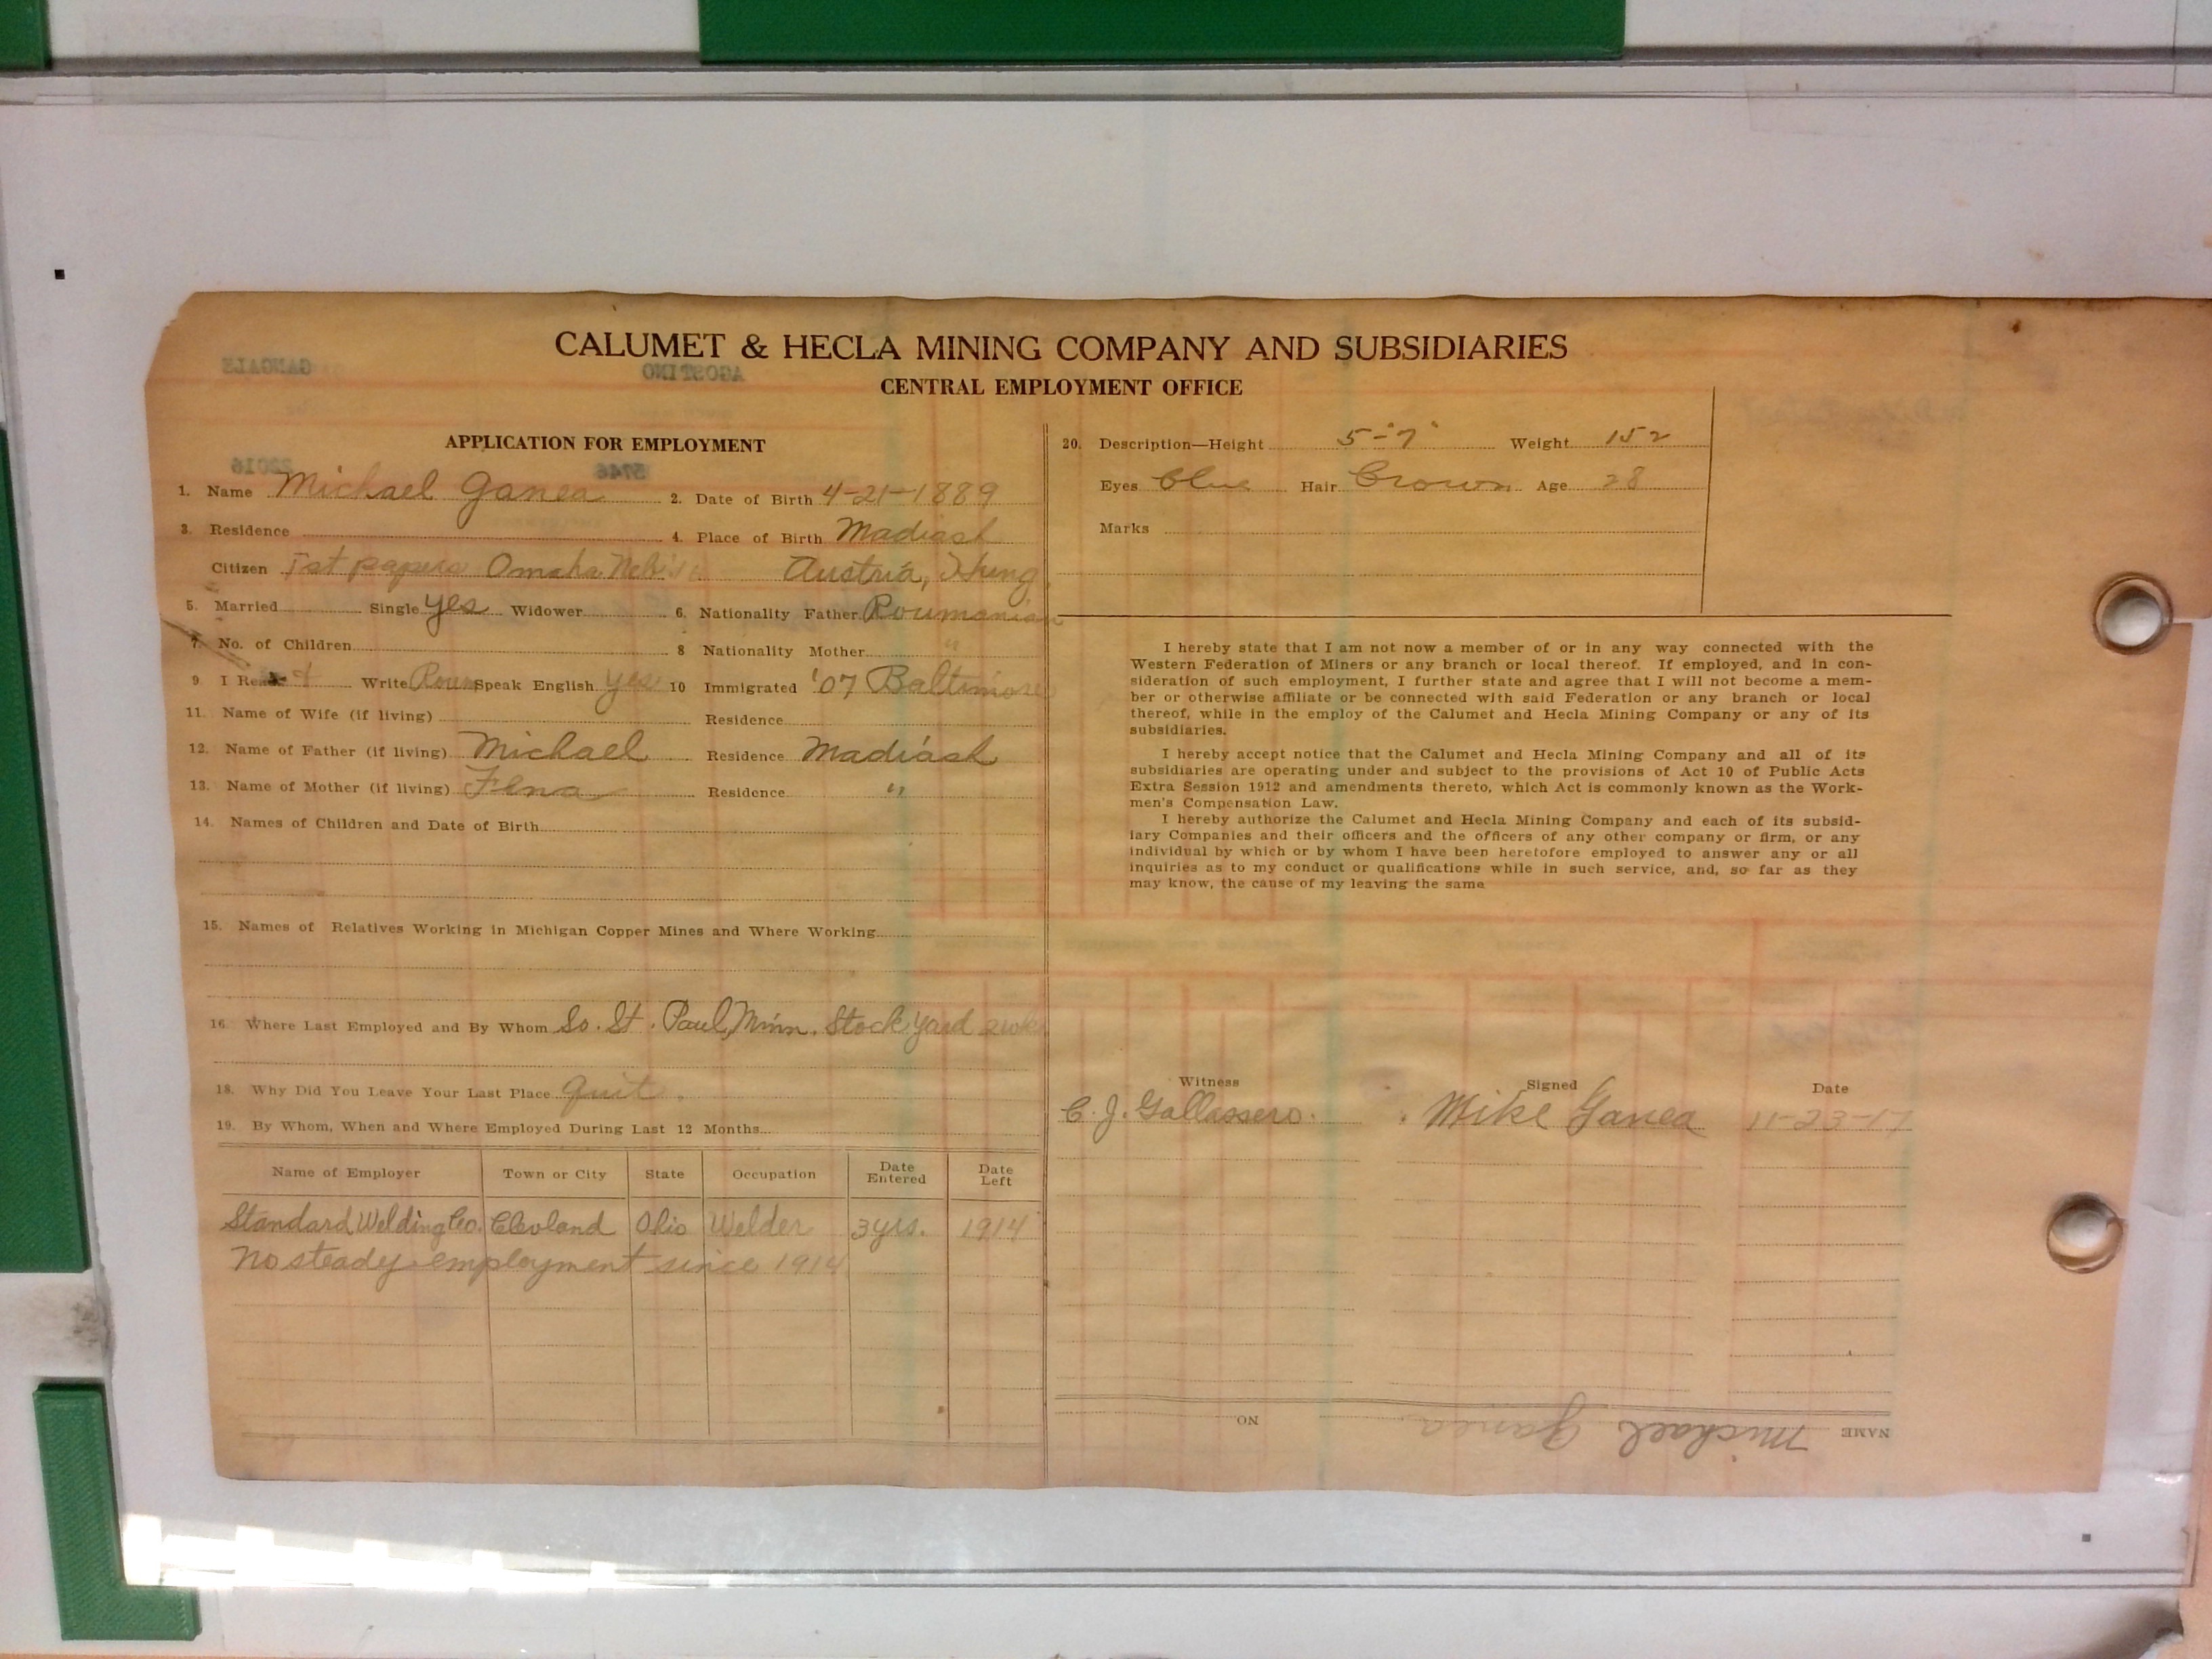 CALUMET & HECLA MINING COMPANY AND SUBSIDIARIES
CENTRAL EMPLOYMENT OFFICE
GANGALE
AGOSTINO
APPLICATION FOR EMPLOYMENT
22016
5746
1. Name Michael Ganea 2. Date of Birth 4-21-1889
3. Residence 4. Place of Birth Madiash
Citizen 1st papers Omaha Neb Austria, Hung
5. Married Single yes Widower 6. Nationality Father Roumanian
7. No. of Children 8 Nationality Mother "
9. I Read & Write Roum Speak English yes 10 Immigrated '07 Baltimore
11. Name of Wife (if living) Residence
12. Name of Father (if living) Michael Residence Madiash
13. Name of Mother (if living) Flena Residence "
14. Names of Children and Date of Birth
15. Names of Relatives Working in Michigan Copper Mines and Where Working
16. Where Last Employed and By Whom So. St. Paul, Minn. Stock Yard 2 wks
18. Why Did You Leave Your Last Place quit.
19. By Whom, When and Where Employed During Last 12 Months
Name of Employer Town or City State Occupation Date Entered Date Left
Standard Welding Co. Clevland Ohio Welder 3 yrs. 1914
No steady employment since 1914
20. Description—Height 5-7" Weight 152
Eyes blue Hair Brown Age 28
Marks
I hereby state that I am not now a member of or in any way connected with the
Western Federation of Miners or any branch or local thereof. If employed, and in con-
sideration of such employment, I further state and agree that I will not become a mem-
ber or otherwise affiliate or be connected with said Federation or any branch or local
thereof, while in the employ of the Calumet and Hecla Mining Company or any of its
subsidiaries.
I hereby accept notice that the Calumet and Hecla Mining Company and all of its
subsidiaries are operating under and subject to the provisions of Act 10 of Public Acts
Extra Session 1912 and amendments thereto, which Act is commonly known as the Work-
men's Compensation Law.
I hereby authorize the Calumet and Hecla Mining Company and each of its subsid-
iary Companies and their officers and the officers of any other company or firm, or any
individual by which or by whom I have been heretofore employed to answer any or all
inquiries as to my conduct or qualifications while in such service, and, so far as they
may know, the cause of my leaving the same
Witness Signed Date
C. J. Gallassero. Mike Ganea 11-23-17
NAME Michael Ganea NO.